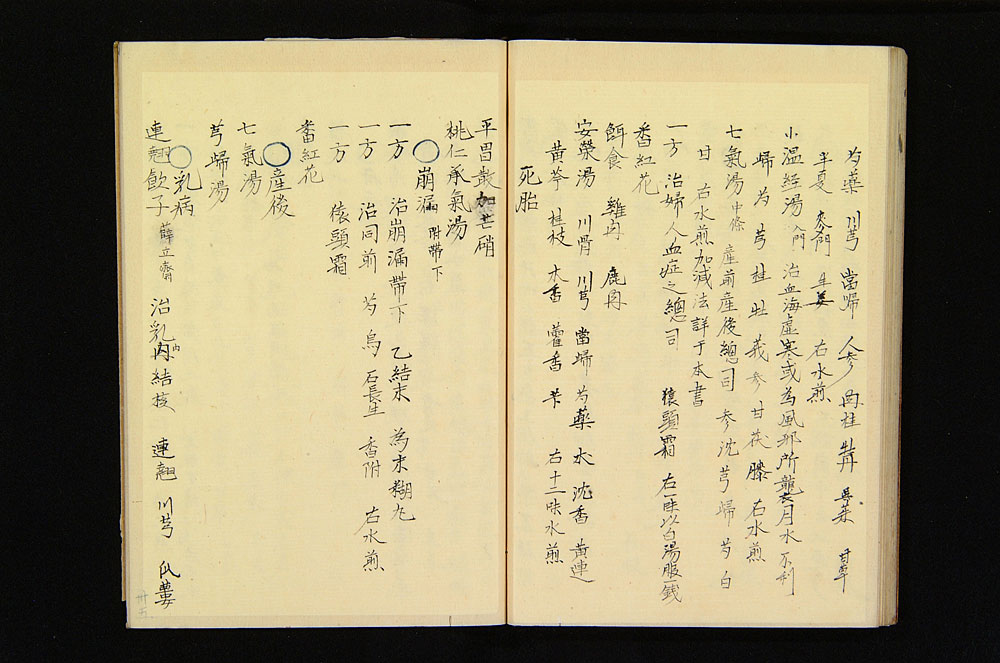 芍藥 川芎 當帰 人参 肉桂 牡丹 莪 甘草
半夏 麥門 生姜 右水煎
小温経湯 入門 治血海虚寒或為風邪所襲月水不利
帰 芍 芎 桂 牡 莪 参 甘 茯 膝 右水煎
七氣湯 中條 産前産後總司 参 沈 芎 帰 芍 白
甘 右水煎加減法詳于本書
一方 治婦人血症之總司 猿頭霜 右一味以白湯服一錢
番紅花
餌食 雞肉 鹿肉
安榮湯 川骨 川芎 當帰 芍藥 木 沈香 黄連
黄芩 桂枝 木香 藿香 苄 右十二味水煎
死胎
平胃散加芒硝
桃仁承氣湯
○崩漏 附帯下
一方 治崩漏帯下 乙結末 為末糊丸
一方 治同前 芍 烏 石長生 香附 右水煎
一方 猿頭霜
番紅花
○産後
七氣湯
芎帰湯
○乳病
連翹飲子 薛立齋 治乳内結核 連翹 川芎 瓜蔞
卅五